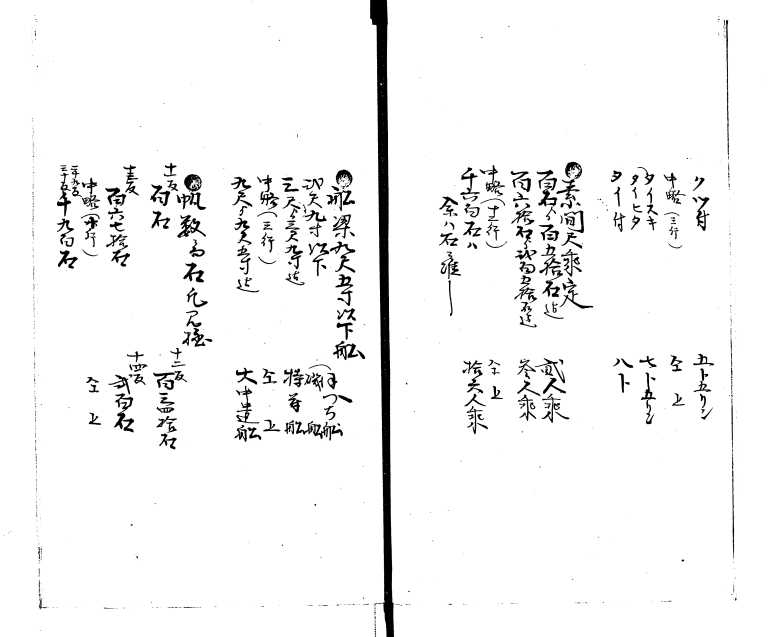 クツ付　五ト五リン
中略（三行）　仝上
タイスキ
タイヒタ　七ト五リン
タイ付　八ト
素間尺乗定
百石ゟ百五拾石迄　貳人乗
百六拾石ゟ弐百五拾石迄　参人乗
中略（十二行）　仝上
千六百石ハ　拾六人乗
余ハ石ニ准シ
船梁九尺五寸以下船
弐尺九寸以下
三尺ゟ三尺九寸迄
中略（三行）　仝上
九尺ゟ九尺五寸迄　大中遣船
帆数高石凡見極
十一反　百石　十二反　百三四拾石
十三反　百六七拾石　十四反　弐百石
中略（十行）　仝上
三十五反　千九百石